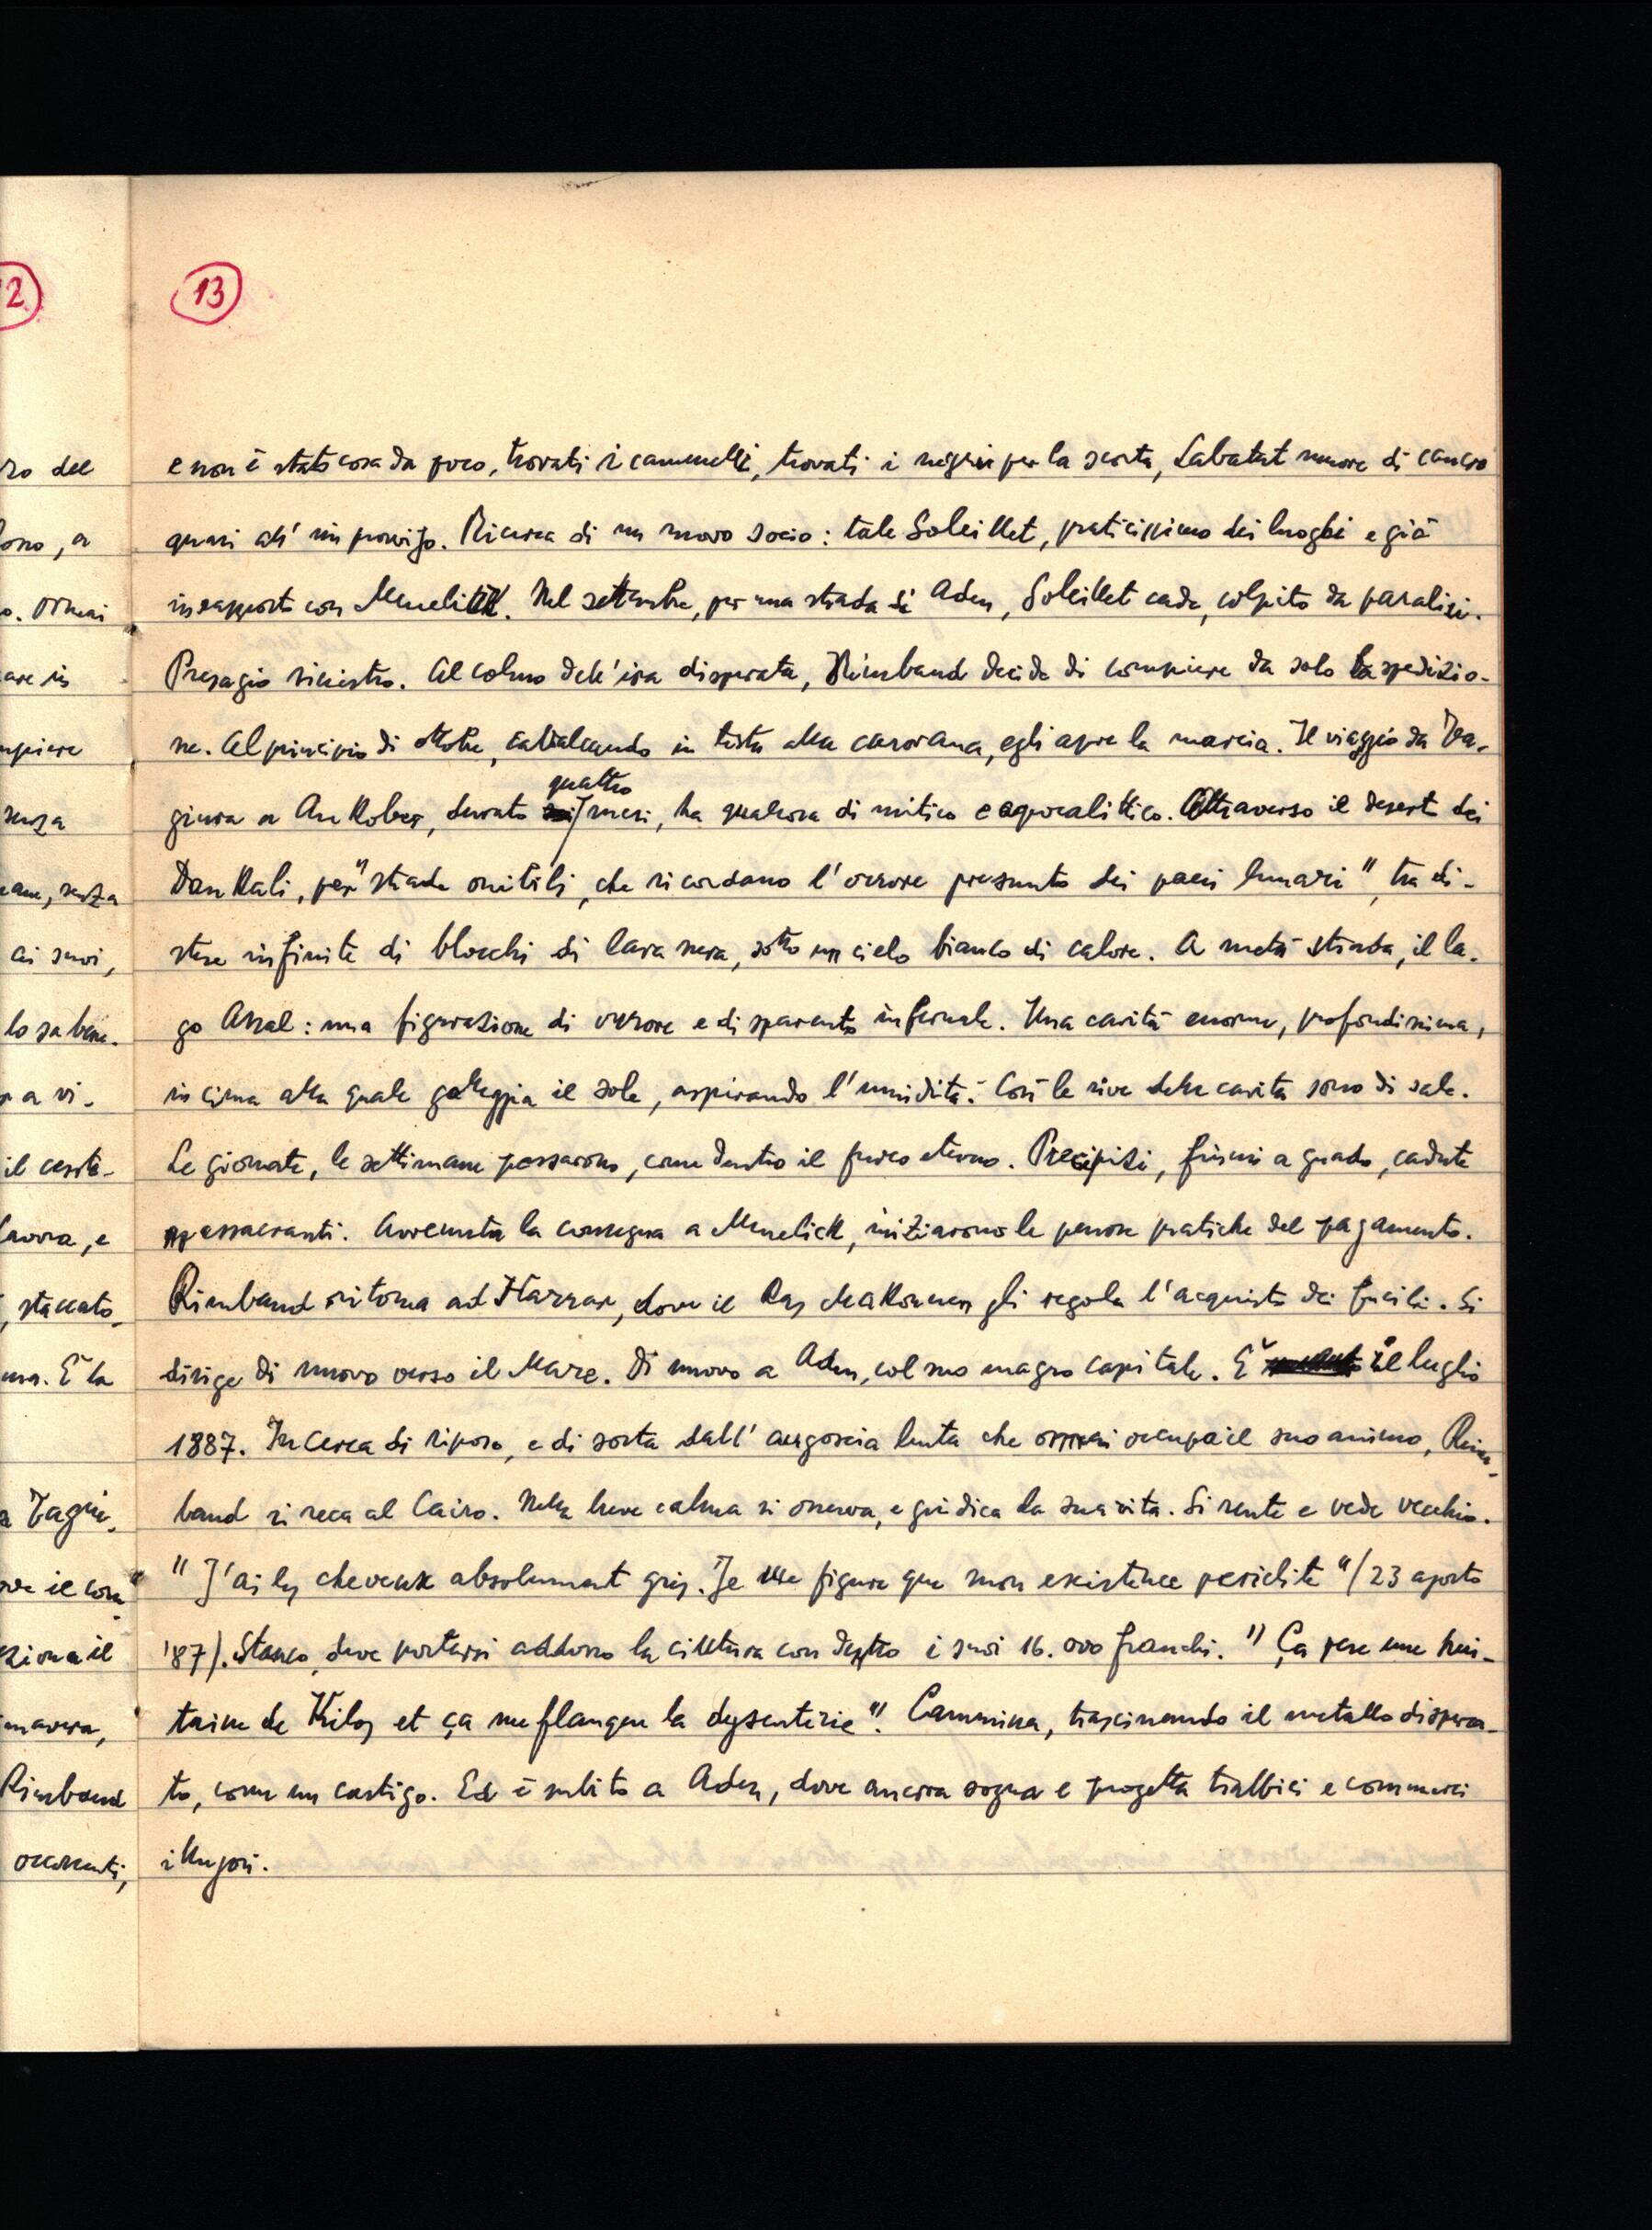 13
e non è stata cosa da poco, trovati i cammelli, trovati i negri per la scorta, Labatut muore di cancro
quasi all'improvviso. Ricerca di un nuovo socio: tale Soleillet, praticissimo dei luoghi e già
in rapporto con Menelick. Nel settembre, per una strada di Aden, Soleillet cade, colpito da paralisi.
Presagio sinistro. Al colmo dell'ira disperata, Rimbaud decide di compiere da solo la spedizio-
ne. Al principio di ottobre, cavalcando in testa alla carovana, egli apre la marcia. Il viaggio da Ta-
giura a Ankober, durato quattro mesi, ha qualcosa di mitico e apocalittico. Attraverso il deserto dei
Dankali, per "strade orribili, che ricordano l'orrore presunto dei paesi lunari", tra di-
stese infinite di blocchi di lava nera, sotto un cielo bianco di calore. A metà strada, il la-
go Assal: una figurazione di orrore e di spavento infernale. Una cavità enorme, profondissima,
in cima alla quale galleggia il sole, aspirando l'umidità. Così le rive della cavità sono di sale.
Le giornate, le settimane passarono, come dentro il fuoco eterno. Precipizi, fiumi a guado, cadute
spessacranti. Avvenuta la consegna a Menelick, iniziarono le penose pratiche del pagamento.
Rimbaud ritorna ad Harrar, dove il Ras Makonnen gli regola l'acquisto dei fucili. Si
dirige di nuovo verso il Mare. Di nuovo a Aden, col suo magro capitale. È il luglio
1887. In cerca di riposo, e di sosta dall'angoscia lenta che ormai occupa il suo animo, Rim-
baud si reca al Cairo. Nella breve calma si osserva, e giudica la sua vita. Si sente e vede vecchio.
"J'ai les cheveux absolument gris. Je me figure que mon existence périclite" (23 agosto
'87). Stanco, deve portarsi addosso la cintura con dentro i suoi 16.000 franchi. "Ça pese une hui-
taine de Kilos et ça me flanque la dysenterie". Cammina, trascinando il metallo dispera-
to, come un castigo. Ed è subito a Aden, dove ancora sogna e progetta traffici e commerci
illusori.